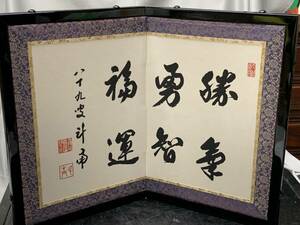 勝氣
勇智
福運
八十九叟